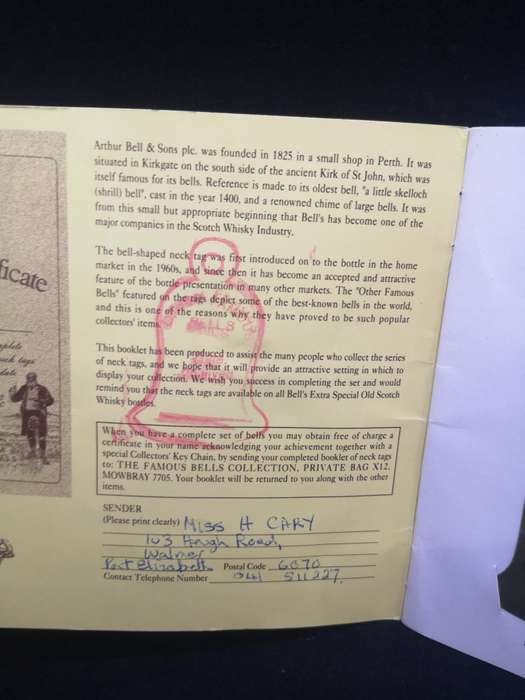 ficate
Arthur Bell & Sons plc. was founded in 1825 in a small shop in Perth. It was
situated in Kirkgate on the south side of the ancient Kirk of St John, which was
itself famous for its bells. Reference is made to its oldest bell, "a little skelloch
(shrill) bell", cast in the year 1400, and a renowned chime of large bells. It was
from this small but appropriate beginning that Bell's has become one of the
major companies in the Scotch Whisky Industry.
The bell-shaped neck tag was first introduced on to the bottle in the home
market in the 1960s, and since then it has become an accepted and attractive
feature of the bottle presentation in many other markets. The "Other Famous
Bells" featured on the tags depict some of the best-known bells in the world,
and this is one of the reasons why they have proved to be such popular
collectors' items.
This booklet has been produced to assist the many people who collect the series
of neck tags, and we hope that it will provide an attractive setting in which to
display your collection. We wish you success in completing the set and would
remind you that the neck tags are available on all Bell's Extra Special Old Scotch
Whisky bottles.
When you have a complete set of bells you may obtain free of charge a
certificate in your name acknowledging your achievement together with a
special Collectors' Key Chain, by sending your completed booklet of neck tags
to: THE FAMOUS BELLS COLLECTION, PRIVATE BAG X12,
MOWBRAY 7705. Your booklet will be returned to you along with the other
items.
SENDER
(Please print clearly) Miss H CARY
103 Heugh Road,
Walmer
Port Elizabeth Postal Code 6070
Contact Telephone Number 041 511227